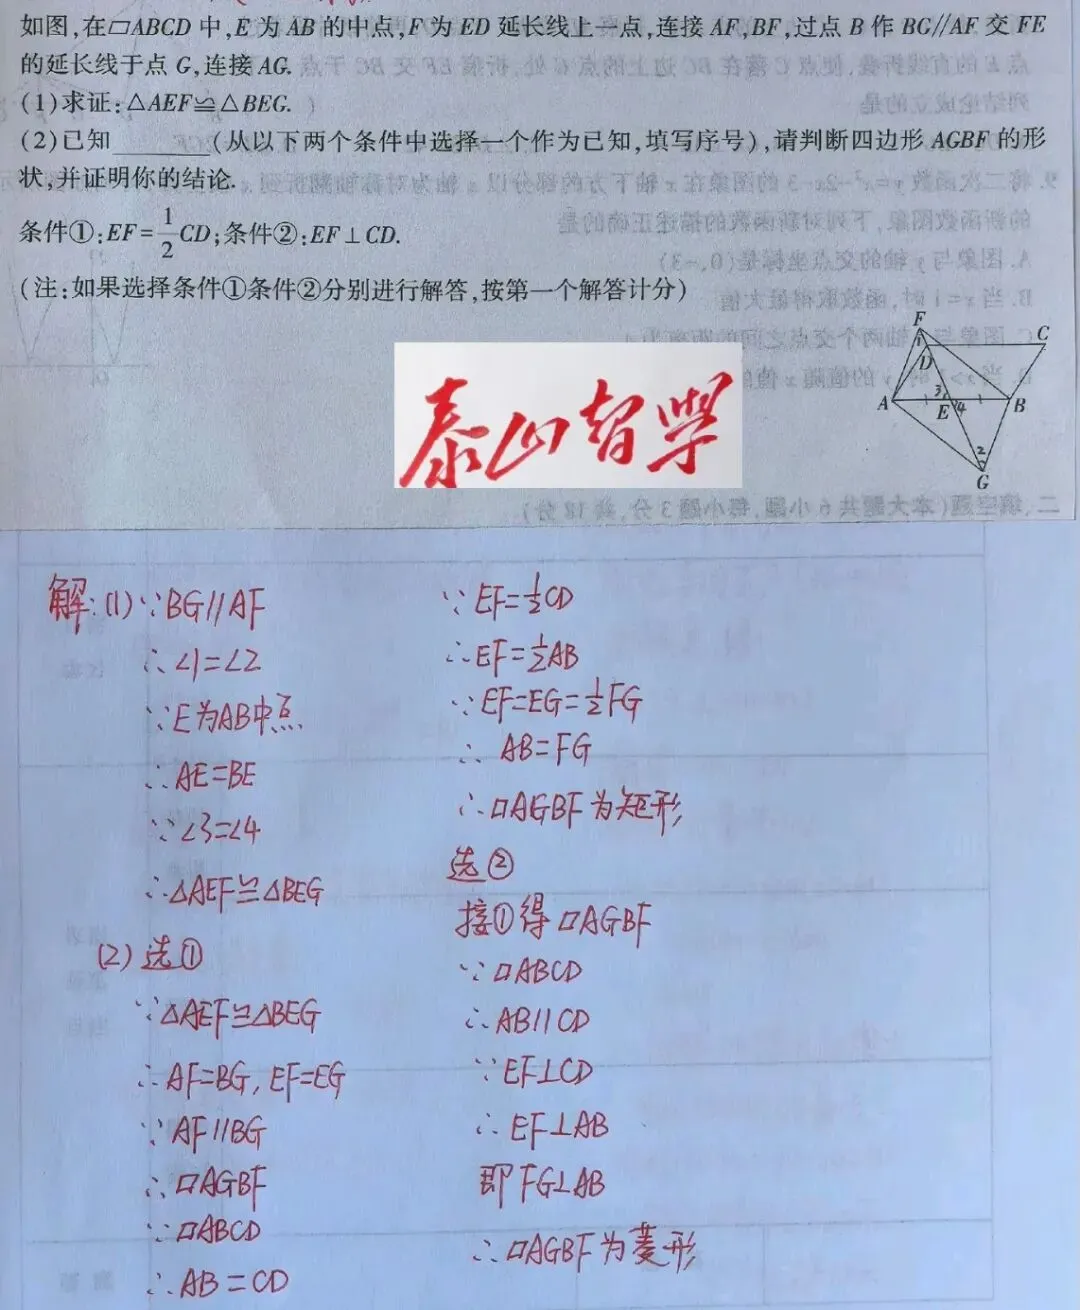 如图,在▱ABCD 中,E 为 AB 的中点,F 为 ED 延长线上一点,连接 AF,BF,过点 B 作 BG∥AF 交 FE
的延长线于点 G,连接 AG.
(1)求证:△AEF≌△BEG.
(2)已知________(从以下两个条件中选择一个作为已知,填写序号),请判断四边形 AGBF 的形
状,并证明你的结论.
条件①:EF=1/2CD;条件②:EF⊥CD.
(注:如果选择条件①条件②分别进行解答,按第一个解答计分)
F
1
D
C
3
A
E
4
B
2
G
泰山智学
解:(1)∵BG∥AF
∴∠1=∠2
∵E为AB中点
∴AE=BE
∵∠3=∠4
∴△AEF≌△BEG
(2)选①
∵△AEF≌△BEG
∴AF=BG,EF=EG
∵AF∥BG
∴▱AGBF
∵▱ABCD
∴AB=CD
∵EF=1/2CD
∴EF=1/2AB
∵EF=EG=1/2FG
∴AB=FG
∴▱AGBF为矩形
选②
接①得▱AGBF
∵▱ABCD
∴AB∥CD
∵EF⊥CD
∴EF⊥AB
即FG⊥AB
∴▱AGBF为菱形